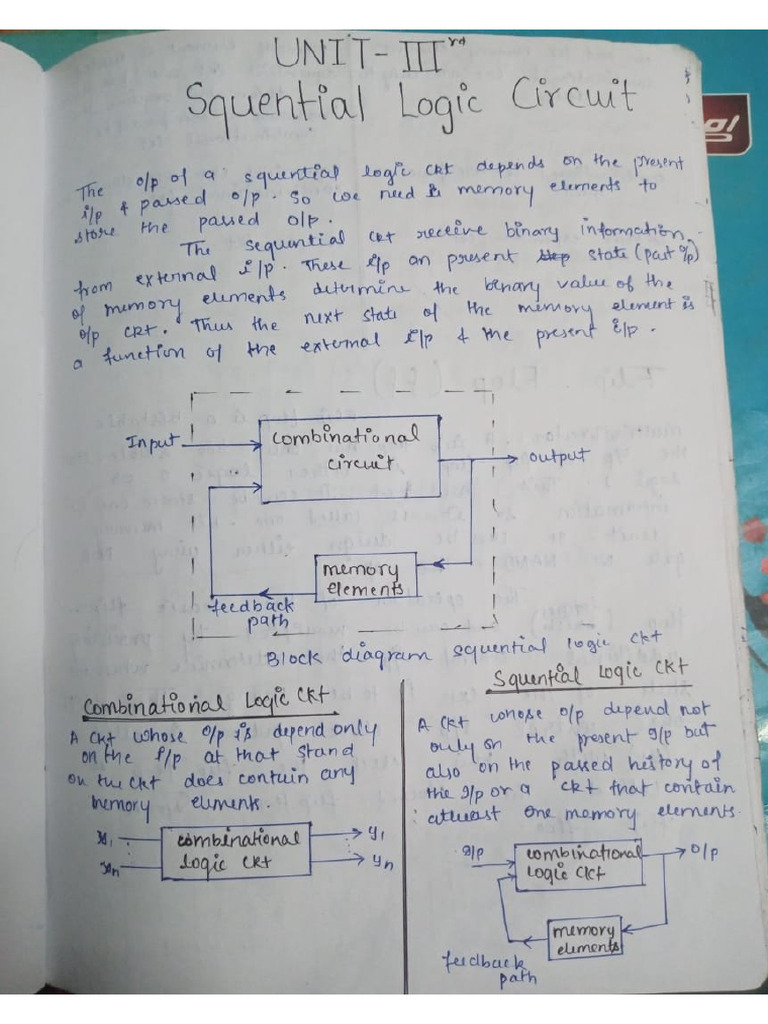 UNIT-III rd
Squential Logic Circuit
The o/p of a squential logic ckt depends on the present
i/p & passed o/p. So we need memory elements to
store the passed o/p.
The sequential ckt receive binary information
from external i/p. These i/p an present state (past o/p)
of memory elements determine the binary value of the
o/p ckt. Thus the next state of the memory element is
a function of the external i/p & the present i/p.
Input
combinational
circuit
output
memory
elements
feedback
path
Block diagram squential logic ckt
Combinational Logic CKT
A ckt whose o/p is depend only
on the i/p at that stand
on the ckt does contain any
memory elements.
x1
xn
combinational
logic ckt
y1
yn
Squential Logic CKT
A ckt whose o/p depend not
only on the present i/p but
also on the passed history of
the i/p or a ckt that contain
atleast one memory elements.
i/p
combinational
logic ckt
o/p
memory
elements
feedback
path